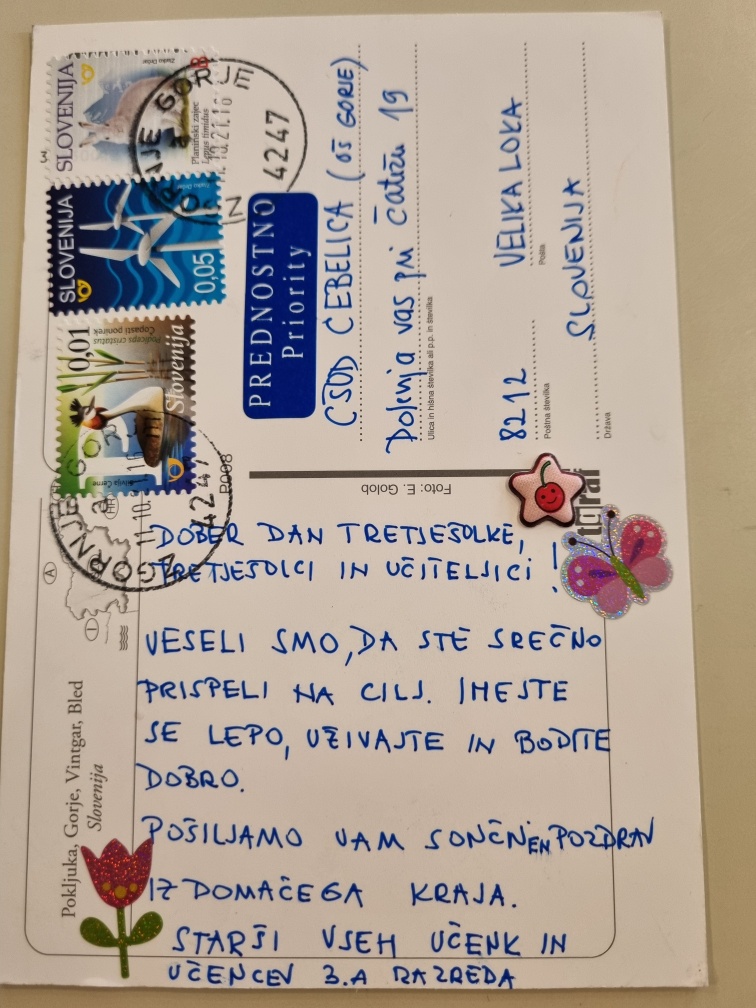 DOBER DAN TRETJEŠOLKE,
TRETJEŠOLCI IN UČITELJICI!
VESELI SMO, DA STE SREČNO
PRISPELI NA CILJ. IMEJTE
SE LEPO, UŽIVAJTE IN BODITE
DOBRO.
POŠILJAMO VAM SONČN EN POZDRAV
IZ DOMAČEGA KRAJA.
STARŠI VSEH UČENK IN
UČENCEV 3.A RAZREDA
ČŠOD ČEBELICA (OŠ GORJE)
Dolenja vas pri Čatežu 19
Ulica in hišna številka ali p.p. in številka
8212 VELIKA LOKA
Poštna številka
Pošta
SLOVENIJA
Država
PREDNOSTNO
Priority
SLOVENIJA
Planinski zajec
Lepus timidus
SLOVENIJA
0,05
0,01
Podiceps cristatus
Čopasti ponirek
Slovenija
Silvija Černe
ZGORNJE GORJE
4247
Foto: E. Golob
P008
Pokljuka, Gorje, Vintgar, Bled
Slovenija
A
I
HR